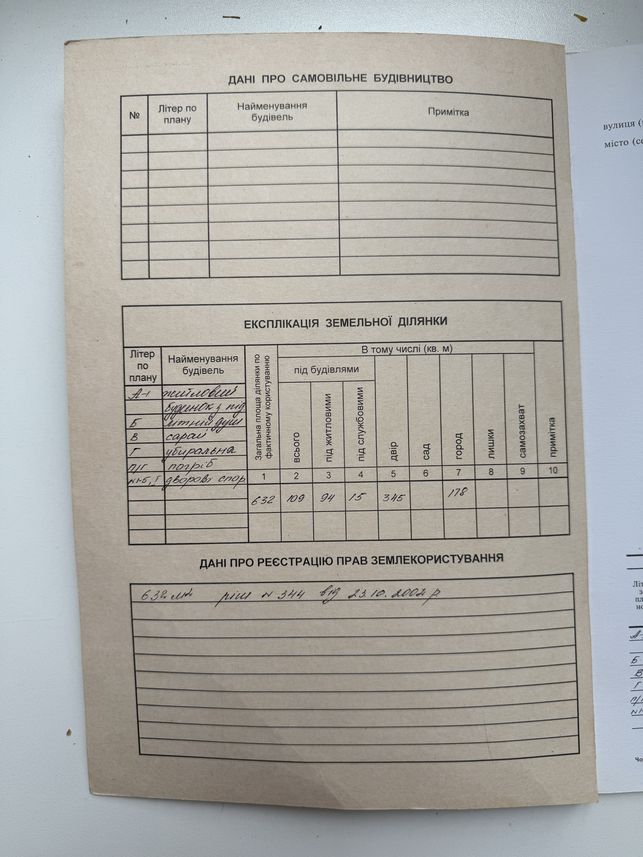 ДАНІ ПРО САМОВІЛЬНЕ БУДІВНИЦТВО
№ Літер по плану Найменування будівель Примітка
вулиця (
місто (се
ЕКСПЛІКАЦІЯ ЗЕМЕЛЬНОЇ ДІЛЯНКИ
Літер по плану Найменування будівель Загальна площа ділянки по фактичному користуванню В тому числі (кв. м) примітка
під будівлями двір сад город лишки самозахват
всього під житловими під службовими
А-І житловий
будинок з під
Б літній душ
В сарай
Г убиральна
п/г погріб
дворові спор
1 2 3 4 5 6 7 8 9 10
632 109 94 15 345 178
ДАНІ ПРО РЕЄСТРАЦІЮ ПРАВ ЗЕМЛЕКОРИСТУВАННЯ
632 ріш N 344 від 23.10.2002 р
Літ
А-
Б
В
Г